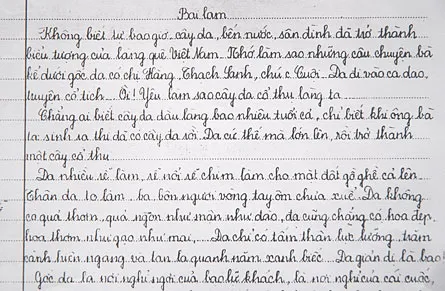 Bài làm
Không biết từ bao giờ cây đa, bến nước, sân đình đã trở thành
biểu tượng của làng quê Việt Nam. Nhớ làm sao những câu chuyện bà
kể dưới gốc đa có chị Hằng, Thạch Sanh, chú c Cuội. Đa đi vào ca dao,
truyện cổ tích... Ôi! Yêu làm sao cây đa cổ thụ làng ta
Chẳng ai biết cây đa đầu làng bao nhiêu tuổi cả, chỉ biết khi ông bà
ta sinh ra thì đã có cây đa rồi. Đa cứ thế mà lớn lên, rồi trở thành
một cây cổ thụ
Đa nhiều rễ lắm, rễ nổi rễ chìm làm cho mặt đất gồ ghề cả lên
Thân đa to lắm ba, bốn người vòng tay ôm chưa xuể. Đa không
có quả thơm, quả ngon như mận như đào, đa cũng chẳng có hoa đẹp,
hoa thơm như gạo như mai,.... Đa chỉ có tấm thân lực lưỡng, trăm
cành hiên ngang và tán lá quanh năm xanh biếc... Đa giản dị là bao
Gốc đa là nơi nghỉ ngơi của bao lữ khách, là nơi nghỉ của cái cuốc,